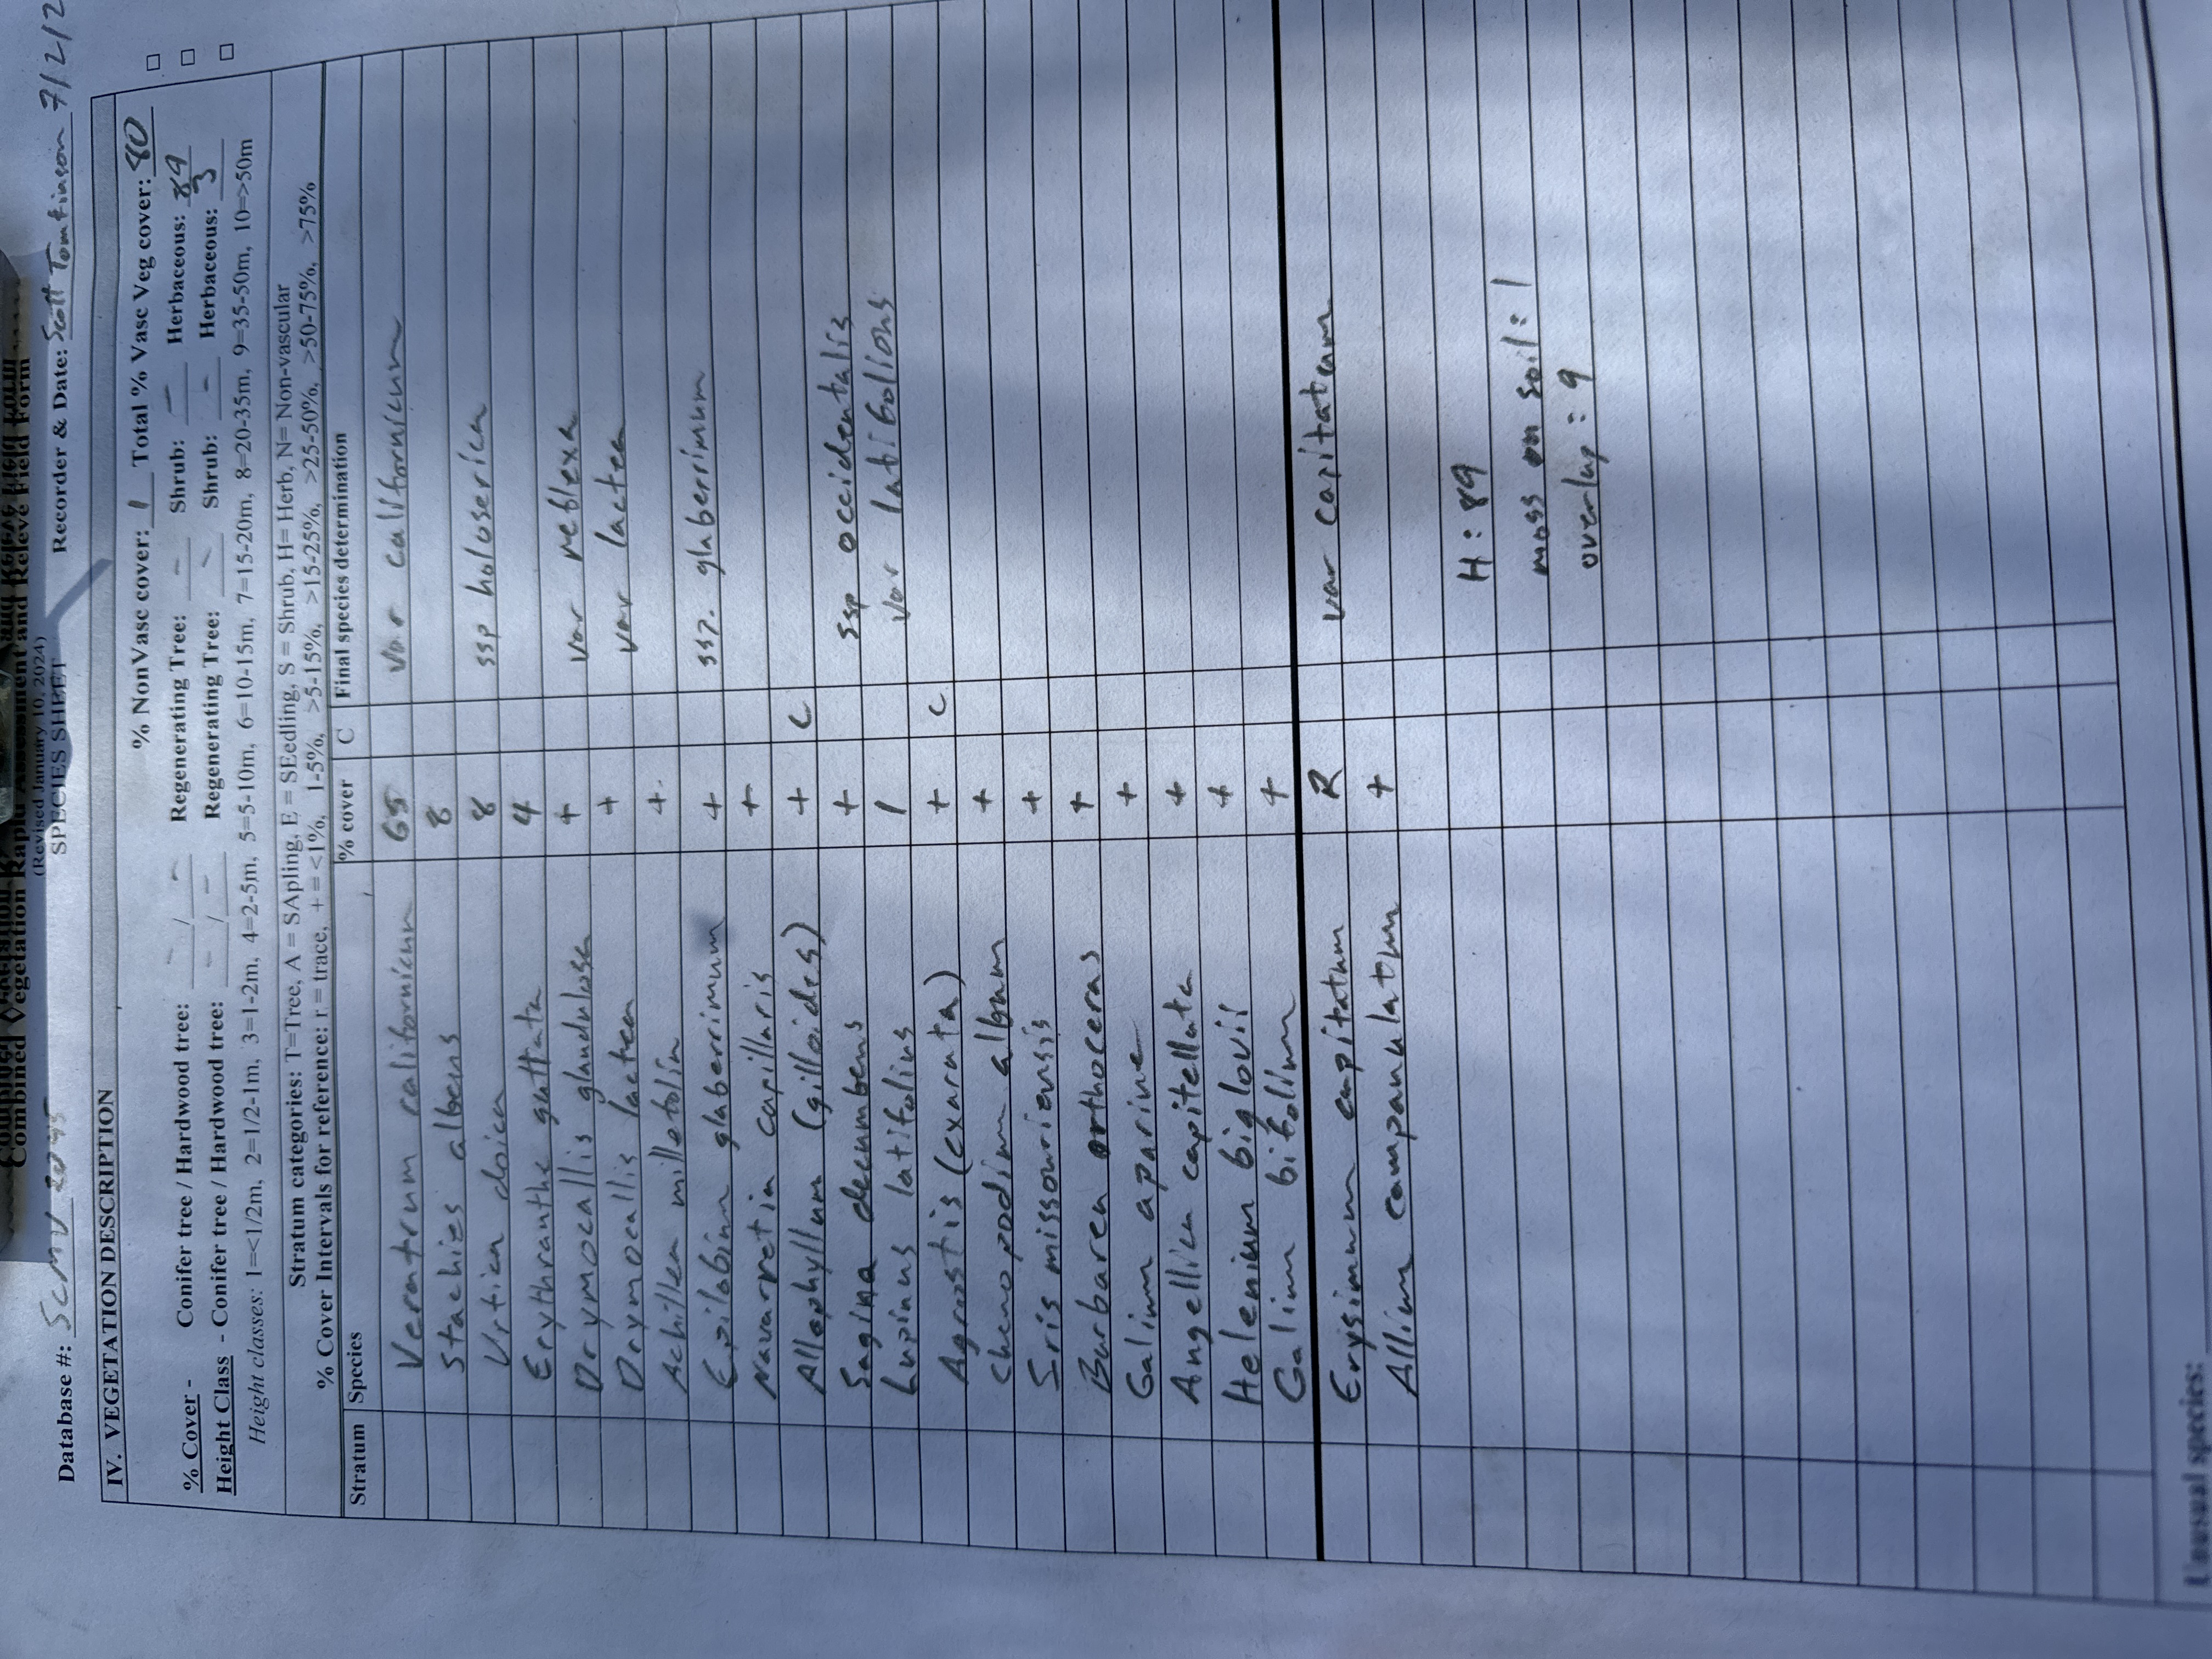 Combined Vegetation Rapid Assessment and Relevé Field Form
(Revised January 10, 2024)
SPECIES SHEET
Database #: Recorder & Date: Scott Tomkinson 7/2/2
IV. VEGETATION DESCRIPTION
% NonVasc cover: 1 Total % Vasc Veg cover: 80
% Cover - Conifer tree / Hardwood tree: - / - Regenerating Tree: - Shrub: - Herbaceous: 89
Height Class - Conifer tree / Hardwood tree: - / - Regenerating Tree: - Shrub: - Herbaceous: 3
Height classes: 1=<1/2m, 2=1/2-1m, 3=1-2m, 4=2-5m, 5=5-10m, 6=10-15m, 7=15-20m, 8=20-35m, 9=35-50m, 10=>50m
Stratum categories: T=Tree, A = SApling, E = SEedling, S = Shrub, H= Herb, N= Non-vascular
% Cover Intervals for reference: r = trace, + = <1%, 1-5%, >5-15%, >15-25%, >25-50%, >50-75%, >75%
Stratum Species % cover C Final species determination
Veratrum californicum 65 var californicum
Stachies albens 8
Urtica doica 8 ssp holoserica
Erythranthe guttata 4
Drymocallis glandulosa + var reflexa
Drymocallis lactea + var lactea
Achillea millefolia +
Epilobium glaberrimum + ssp. glaberrimum
Navarretia capillaris +
Allophyllum (gilloides) + C
Sagina decumbens + ssp occidentalis
Lupinus latifolius 1 var latifolious
Agrostis (exarata) + C
Chenopodium album +
Iris missouriensis +
Barbarea orthoceras +
Galium aparine +
Angellica capitellata +
Helenium biglovii +
Galium bifolium +
Erysimum capitatum R var capitatum
Allium campanulatum +
H: 89
moss on soil: 1
overlap: 9
Unusual species: